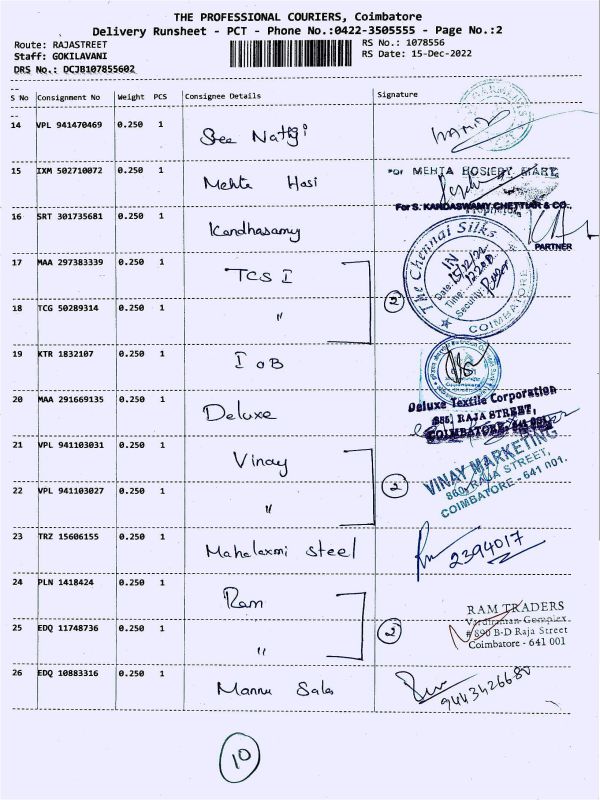 THE PROFESSIONAL COURIERS, Coimbatore
Delivery Runsheet - PCT - Phone No.:0422-3505555 - Page No.:2
Route: RAJASTREET
RS No.: 1078556
Staff: GOKILAVANI
RS Date: 15-Dec-2022
DRS No.: DCJB107855602
S No Consignment No Weight PCS Consignee Details Signature
14 VPL 941470469 0.250 1 Sree
15 IXM 502710072 0.250 1 Mehta Hosi
For MEHTA HOSIERY MART
16 SRT 301735681 0.250 1 Kandhasamy
For S. KANDASWAMY CHETTIAR & CO.,
PARTNER
17 MAA 297383339 0.250 1 TCS I
The Chennai Silks
IN
Date: 15/12/22
Time:
Security:
COIMBATORE
2
18 TCG 50289314 0.250 1 "
19 KTR 1832107 0.250 1 IOB
20 MAA 291669135 0.250 1 Deluxe
Deluxe Textile Corporation
RAJA STREET,
COIMBATORE- 641 001.
21 VPL 941103031 0.250 1 Vinay
VINAY MARKETING
860, RAJA STREET,
COIMBATORE - 641 001.
2
22 VPL 941103027 0.250 1 "
23 TRZ 15606155 0.250 1 Mahalaxmi Steel
2394017
24 PLN 1418424 0.250 1 Ram
RAM TRADERS
Vardhman Complex
# 890 B-D Raja Street
Coimbatore - 641 001
2
25 EDQ 11748736 0.250 1 "
26 EDQ 10883316 0.250 1 Mannu Sales
9443426680
10